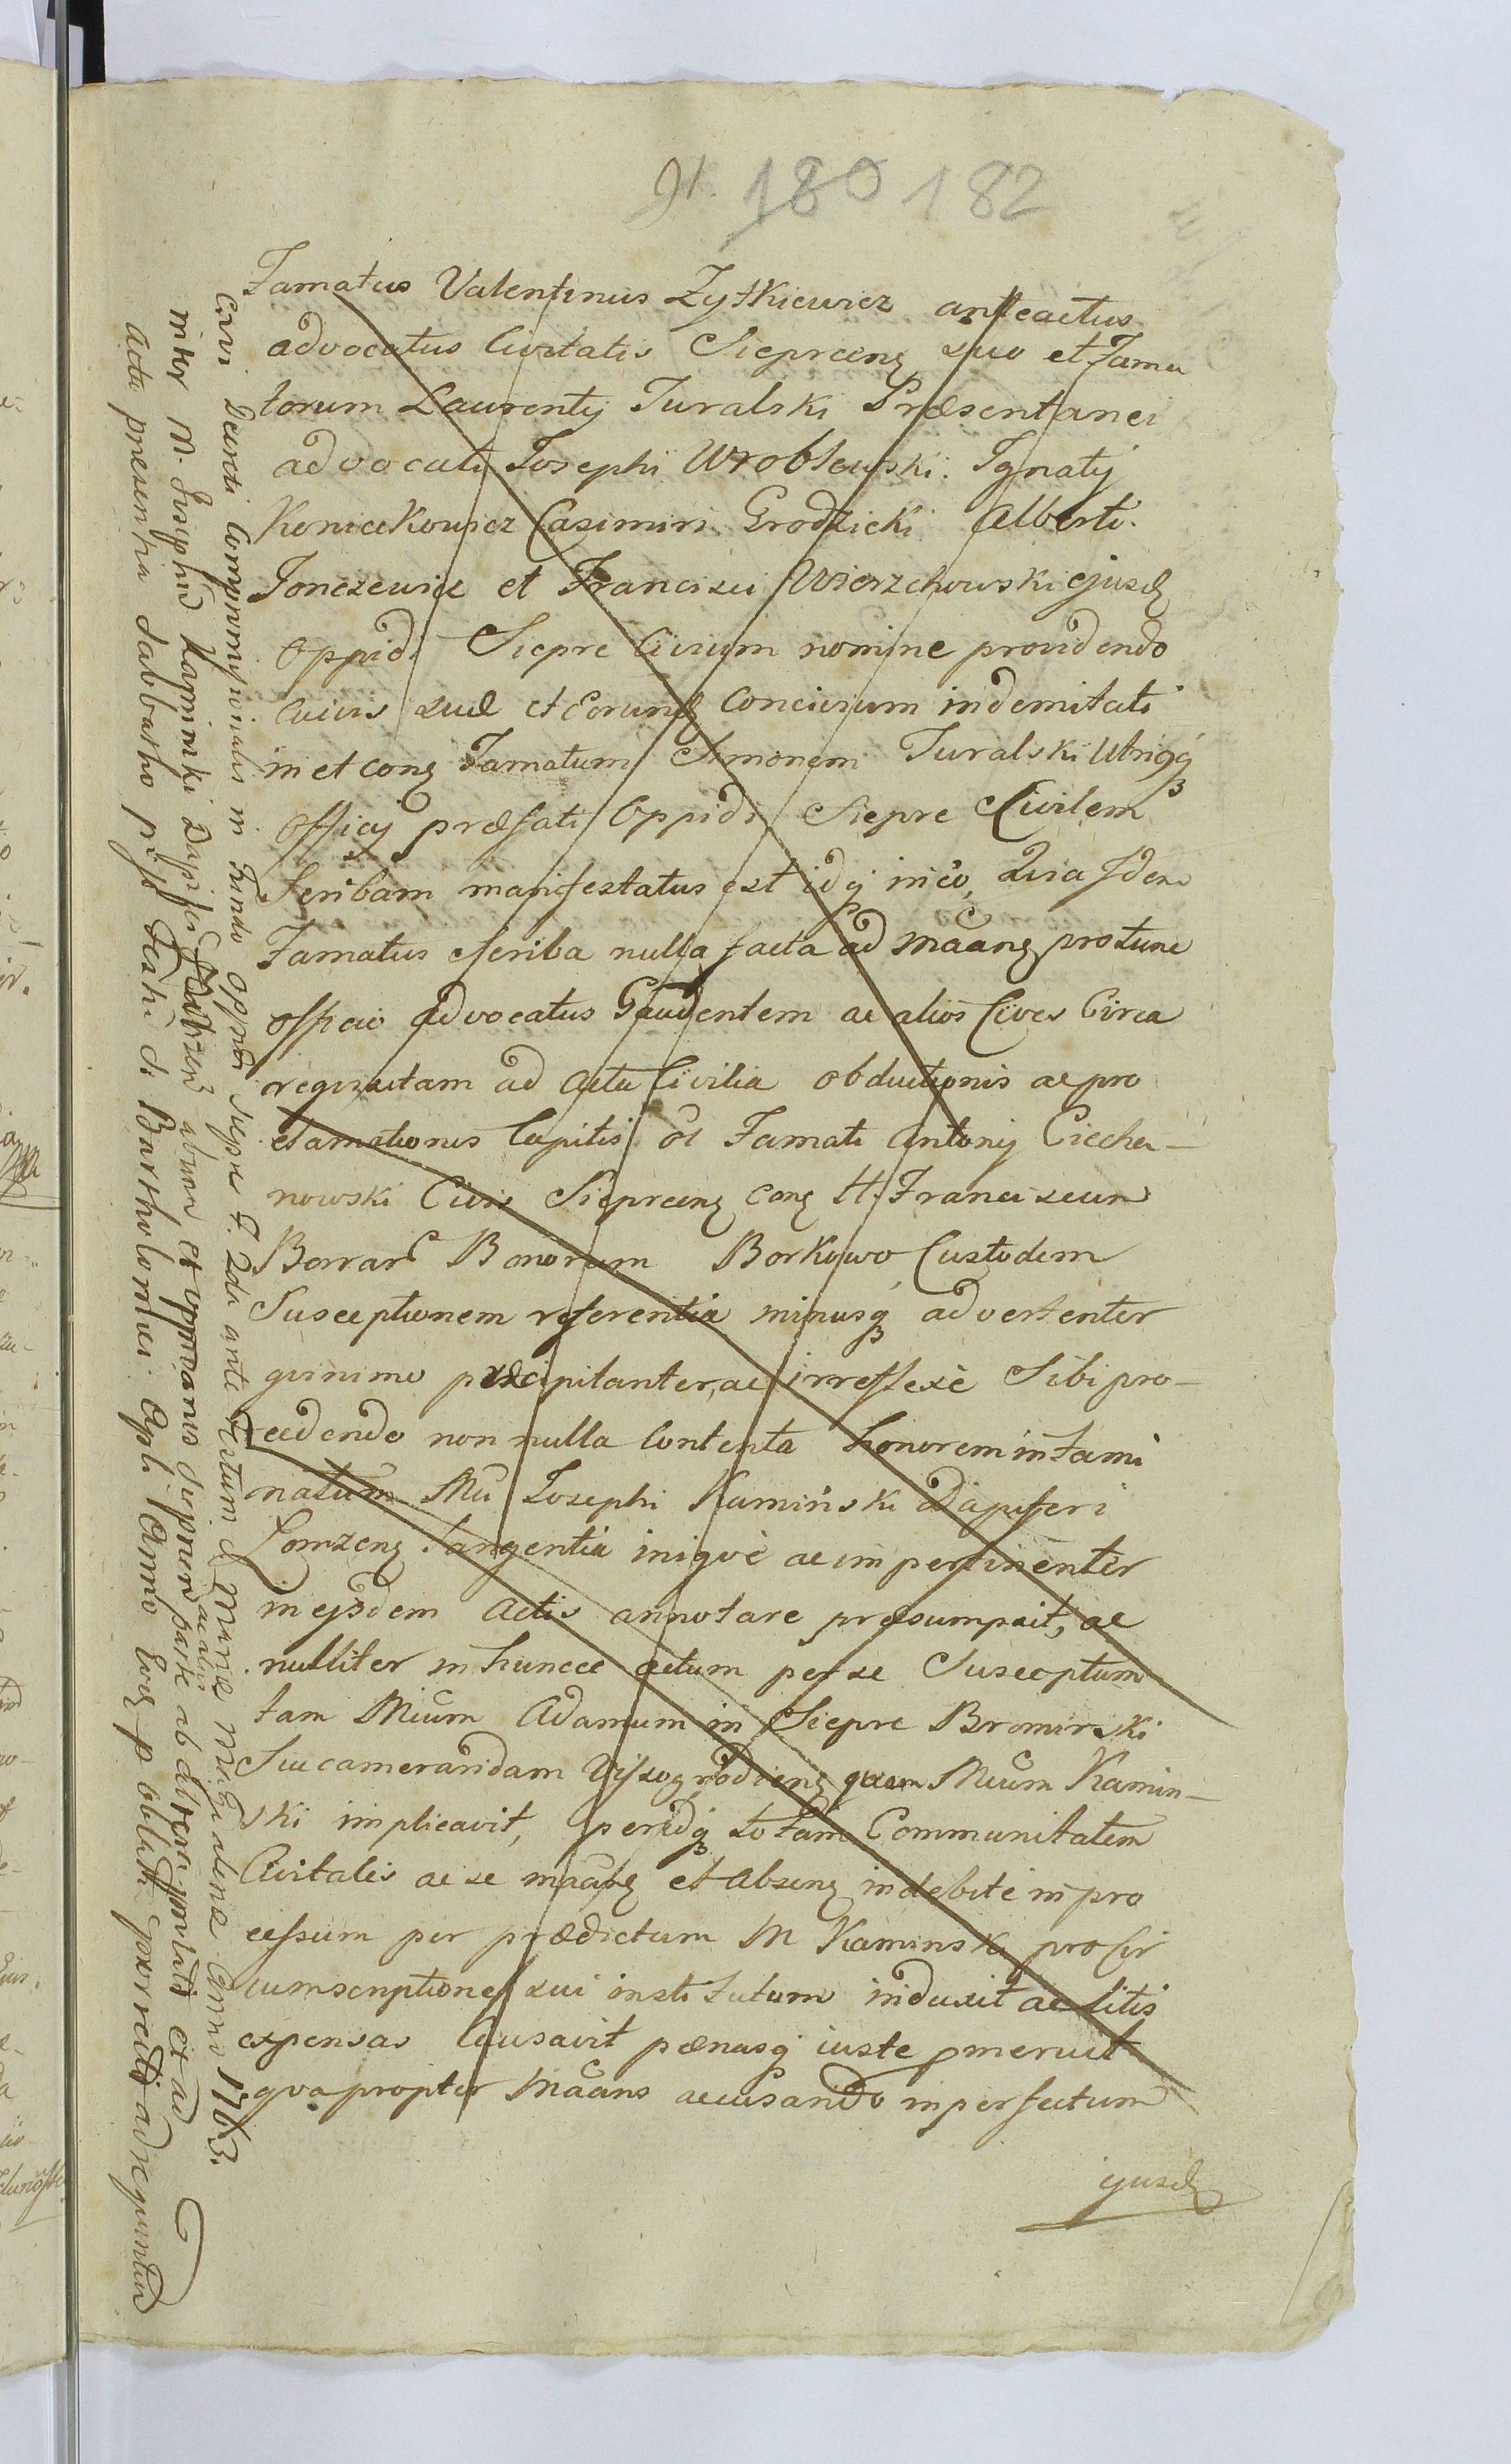 91. 180 182
Famatus Valentinus Zytkiewicz anteactus
advocatus Civitatis Sieprcens suo et Fama
torum Laurentij Turalski Præsentanei
advocati Josephi Wroblewski. Ignatij
Konicekowicz Casimiri Grodzicki Alberti.
Jonczewicz et Francisci Wierzchowski ejusd
Oppidi Siepre Civium nomine providendo
Civis suæ et Eorund Concivium indemitati
in et cong Famatum Simonem Turalski Utriqq
Officij præfati Oppidi Siepre Civilem
Scribam manifestatus est idq in eo, Quia Idem
Famatus Scriba nulla facta ad Mãang protunc
officio advocatus Gaudentem ac alios Cives Circa
requisitam ad Acta Civilia obductionis ac pro
clamationis Capitis ol Famati Antonij Ciecha-
nowski Civis Sieprcens cong H. Franciscum
Borrarz Bonorum Borkowo Custodem
Susceptionem referentia minusq advertenter
quinimo præcipitanter, ac irreflexè Sibi pro-
cedendo non nulla Contenta honorem intami
natum Mci Josephi Kamiński Dapiferi
Lomzens tangentia iniqvè ac impertinenter
in ejsdem Actis annotare præsumpsit, ac
nulliter in huncce actum per se Susceptum
tam Mcum Adamum in Siepre Bromirski
Succamerandam Wyszogrodiens quam Mcum Kamin-
ski implicavit, peridq totam Communitatem
Civitatis ac se mãang et Absens indebitè in pro
cessum per prædictum M Kaminski pro cir
cumscriptione sui institutum induxit ac litis
expensas Causavit pænasq iuste pmeruit
qvapropter Mãans accusando inperfectum
ijusd
Civi Decreti Compromissionalis in Fundo Oppidi Siepre F. 2da ante Festum S Mariæ Magdalenæ Anno 1763.
inter M. Josephum Kaminski Dapiferum Lomzens ab una et oppidanos Sieprcens ac alios parte ab altera prolati et ad
Acta præsentia Sabbatho post Festum S. Bartholomæi Apli Anno Eod p oblatam porrecti ad requisitionem